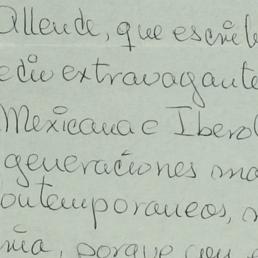 Allende, que escrib
edio extravagante
Mexicana e Ibero
generaciones ma
contemporaneos,
nia, porque